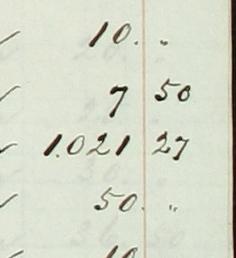 ✓ 10. "
✓ 7 50
✓ 1.021 27
✓ 50. "
✓ 10